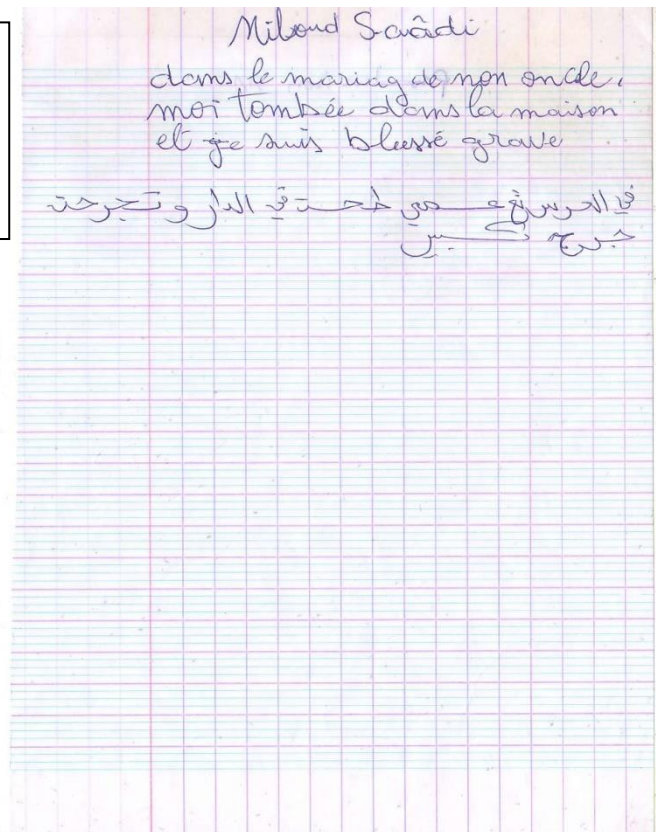 Miloud Saâdi
dans le mariag de mon oncle,
moi tombée dans la maison
et je suis blessé grave
في العرس تع عمي طحت في الدار و تجرحت
جرح كبير